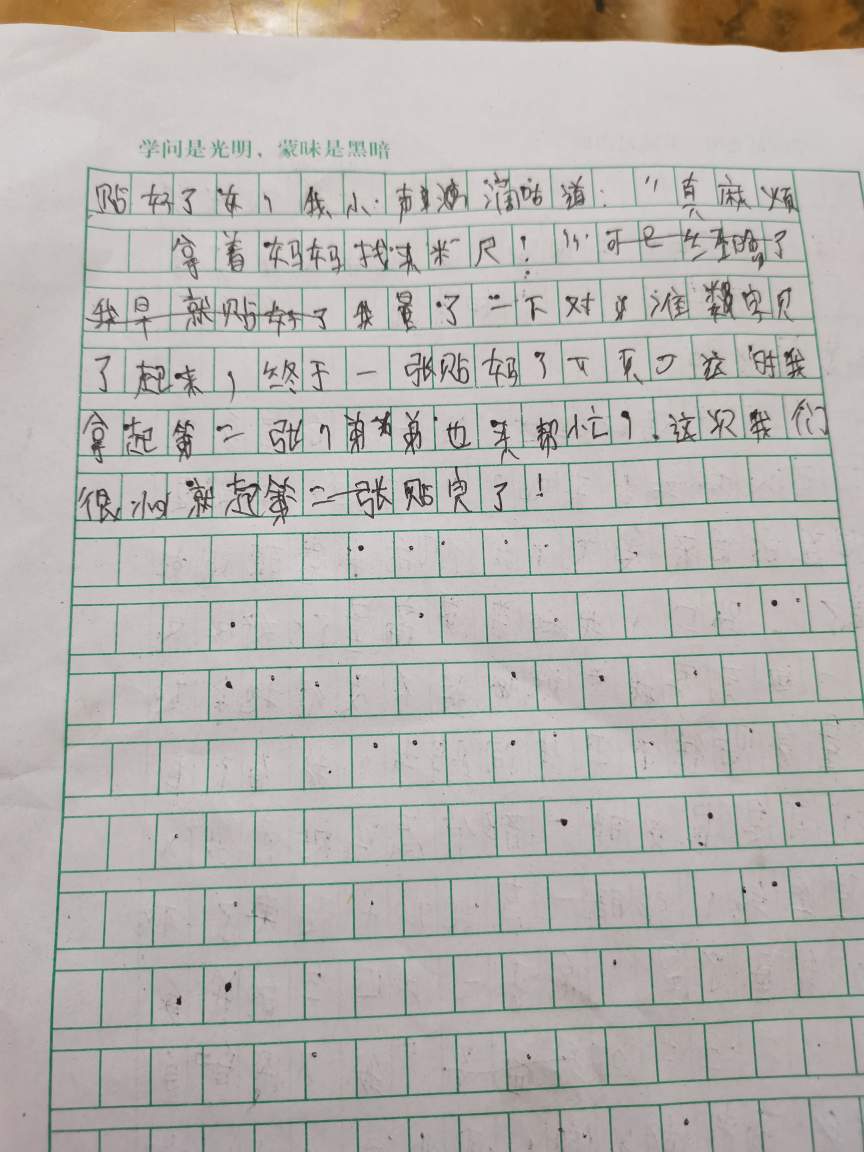 学问是光明，蒙昧是黑暗
贴好了 ，我小声 滴咕道：“真麻烦
拿着妈妈找来米尺！
我早就贴好了我量了一下对 准数字贝
了起来，终于一张贴 了 页 这时我
拿起第二张，弟弟也来帮忙，.这次我们
很 就起第二张贴完了！